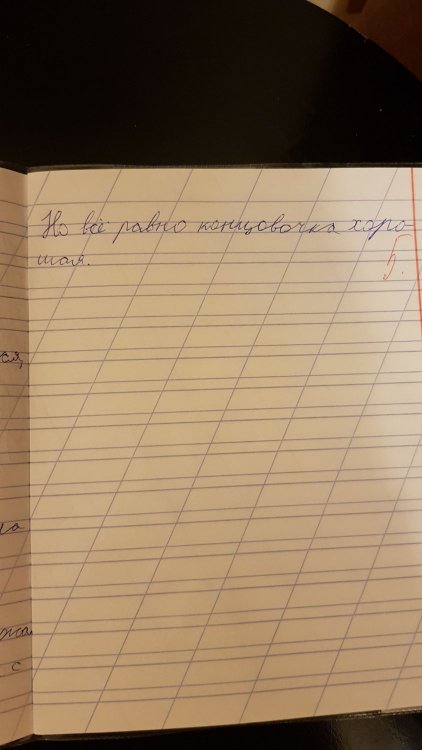 Но всё равно концовочка хоро-
шая.
5.
ся,
с